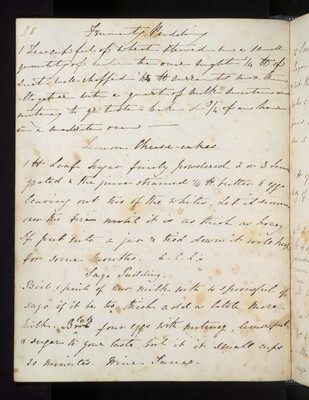 38
Frumenty Pudding
1 Teacupful of Wheat stewed in a small
quantity of water the over night 1/4 lb of
suet well chopped 1/4 lb currants mix them
together with a quart of milk
nutmeg to yr taste bake it 3/4 of an hour
in a moderate oven —
Lemon Cheese-cakes
1 lb Loaf Sugar finely powdered 2 or 3 Lemons
grated & the juice strained 1/4 lb butter 6 eggs
leaving out two of the whites, Let it simmer
over the fire until it is as thick as honey
If put into a jar & tied down it will keep
for some months.
Sago Pudding.
Boil 1 pint of new milk with 4 spoonfuls of
sago if it be too thick add a little more
milk. Beat four eggs with nutmeg,
& sugar to your taste, boil it in small cups
20 minutes. Wine Sauce.